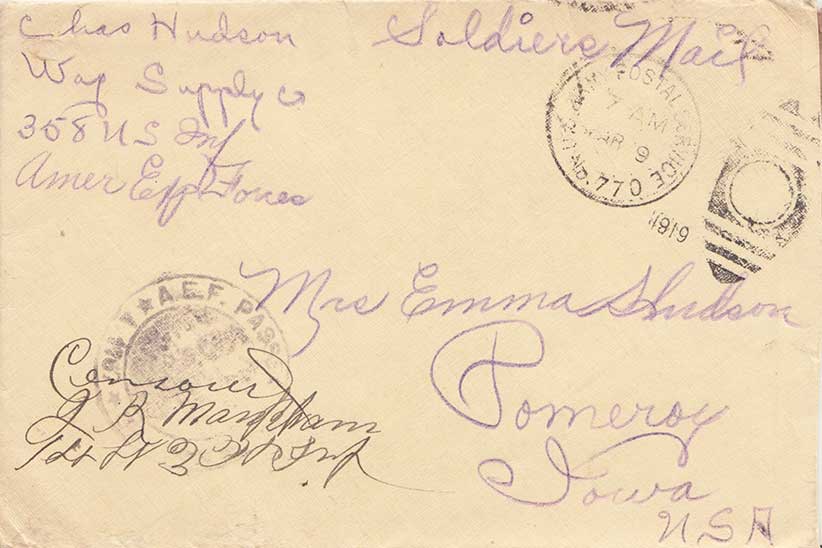 Chas Hudson
Wag Supply Co
358 US Inf
Amer Exp Forces
Soldiers Mail
U.S. ARMY POSTAL SERVICE
7 AM
MAR 9
770
1919
Mrs Emma Hudson
Pomeroy
Iowa
USA
A.E.F. PASSED
1st Lt
Inf